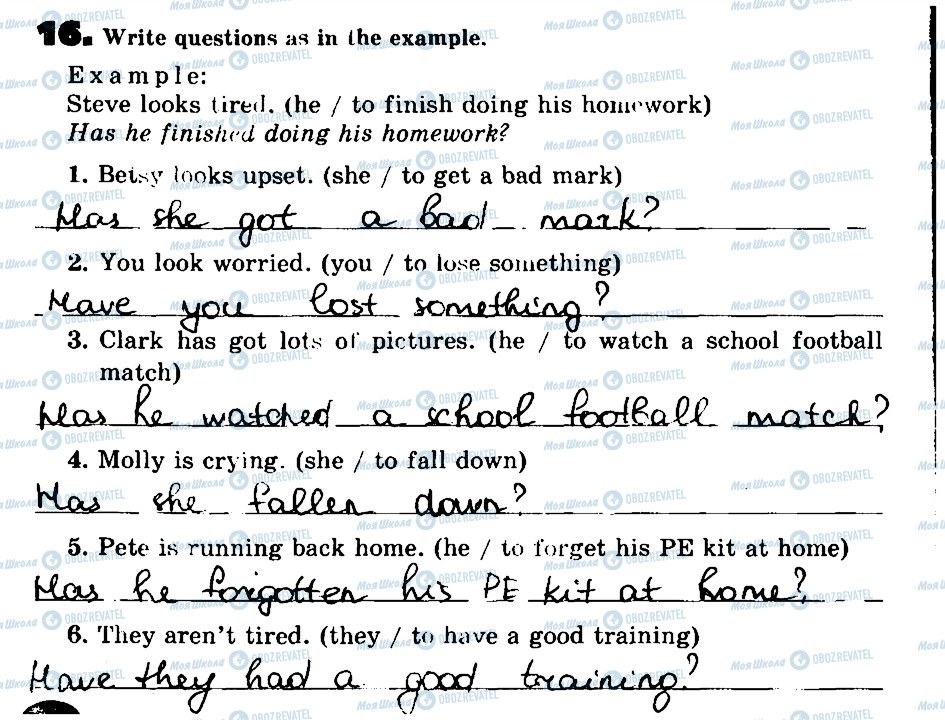 16. Write questions as in the example.
Example:
Steve looks tired. (he / to finish doing his homework)
Has he finished doing his homework?
1. Betsy looks upset. (she / to get a bad mark)
Has she got a bad mark?
2. You look worried. (you / to lose something)
Have you lost something?
3. Clark has got lots of pictures. (he / to watch a school football
match)
Has he watched a school football match?
4. Molly is crying. (she / to fall down)
Has she fallen down?
5. Pete is running back home. (he / to forget his PE kit at home)
Has he forgotten his PE kit at home?
6. They aren't tired. (they / to have a good training)
Have they had a good training?